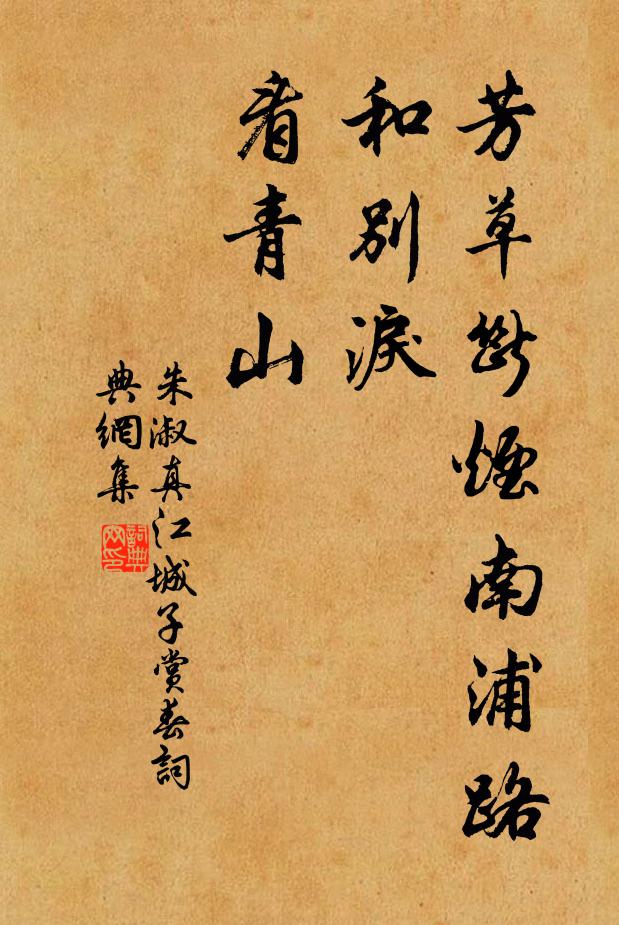 芳草斷煙南浦路
和別淚
看青山
朱淑真江城子賞春詞
典網集
詞典网印